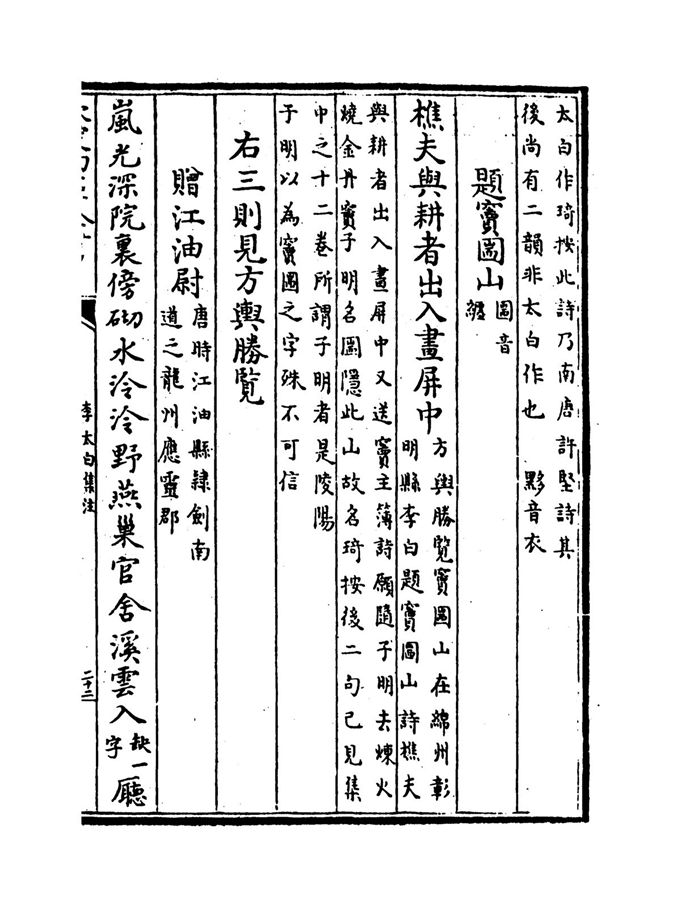 太白作琦按此詩乃南唐許堅詩其
後尚有二韻非太白作也 黟音衣
題竇圌山圌音
䌓
樵夫與耕者出入畫屏中方輿勝覽竇圌山在綿州彰
明縣李白題竇圌山詩樵夫
與耕者出入畫屏中又送竇主簿詩願隨子明去煉火
燒金丹竇子明名圌隱此山故名琦按後二句已見集
中之十二卷所謂子明者是陵陽
子明以為竇圌之字殊不可信
右三則見方輿勝覽
贈江油尉唐時江油縣隸劍南
道之龍州應靈郡
嵐光深院裏傍砌水泠泠野燕巢官舍溪雲入缺一
字廳
李太白集注
二十二